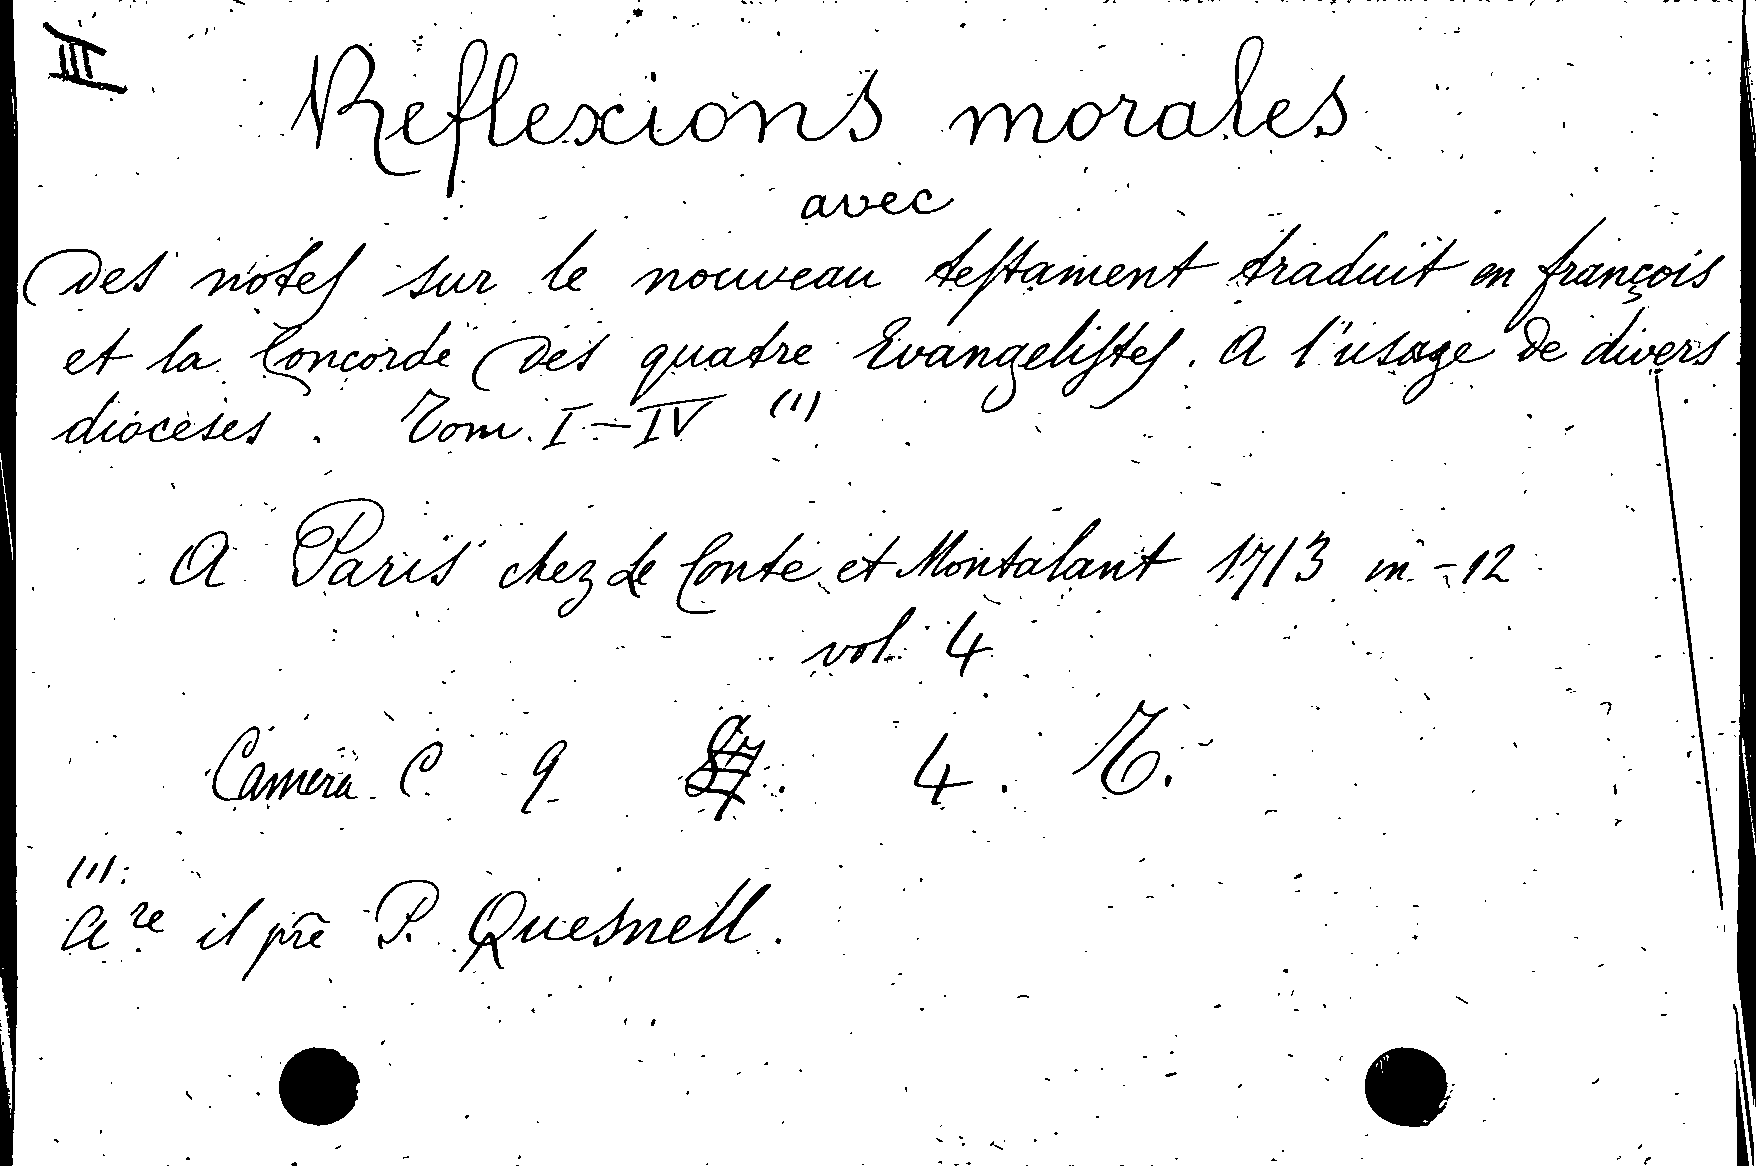 III
Reflexions morales
avec
Des notes sur le nouveau testament traduit en françois
et la Concorde des quatre Evangelistes. A l'usage de divers
dioceses. Tom. I-IV (1)
A Paris chez de Conte et Montalant 1713 in-12
vol. 4
Camera C 9 4. T.
(1).
Are il pre P. Quesnell.